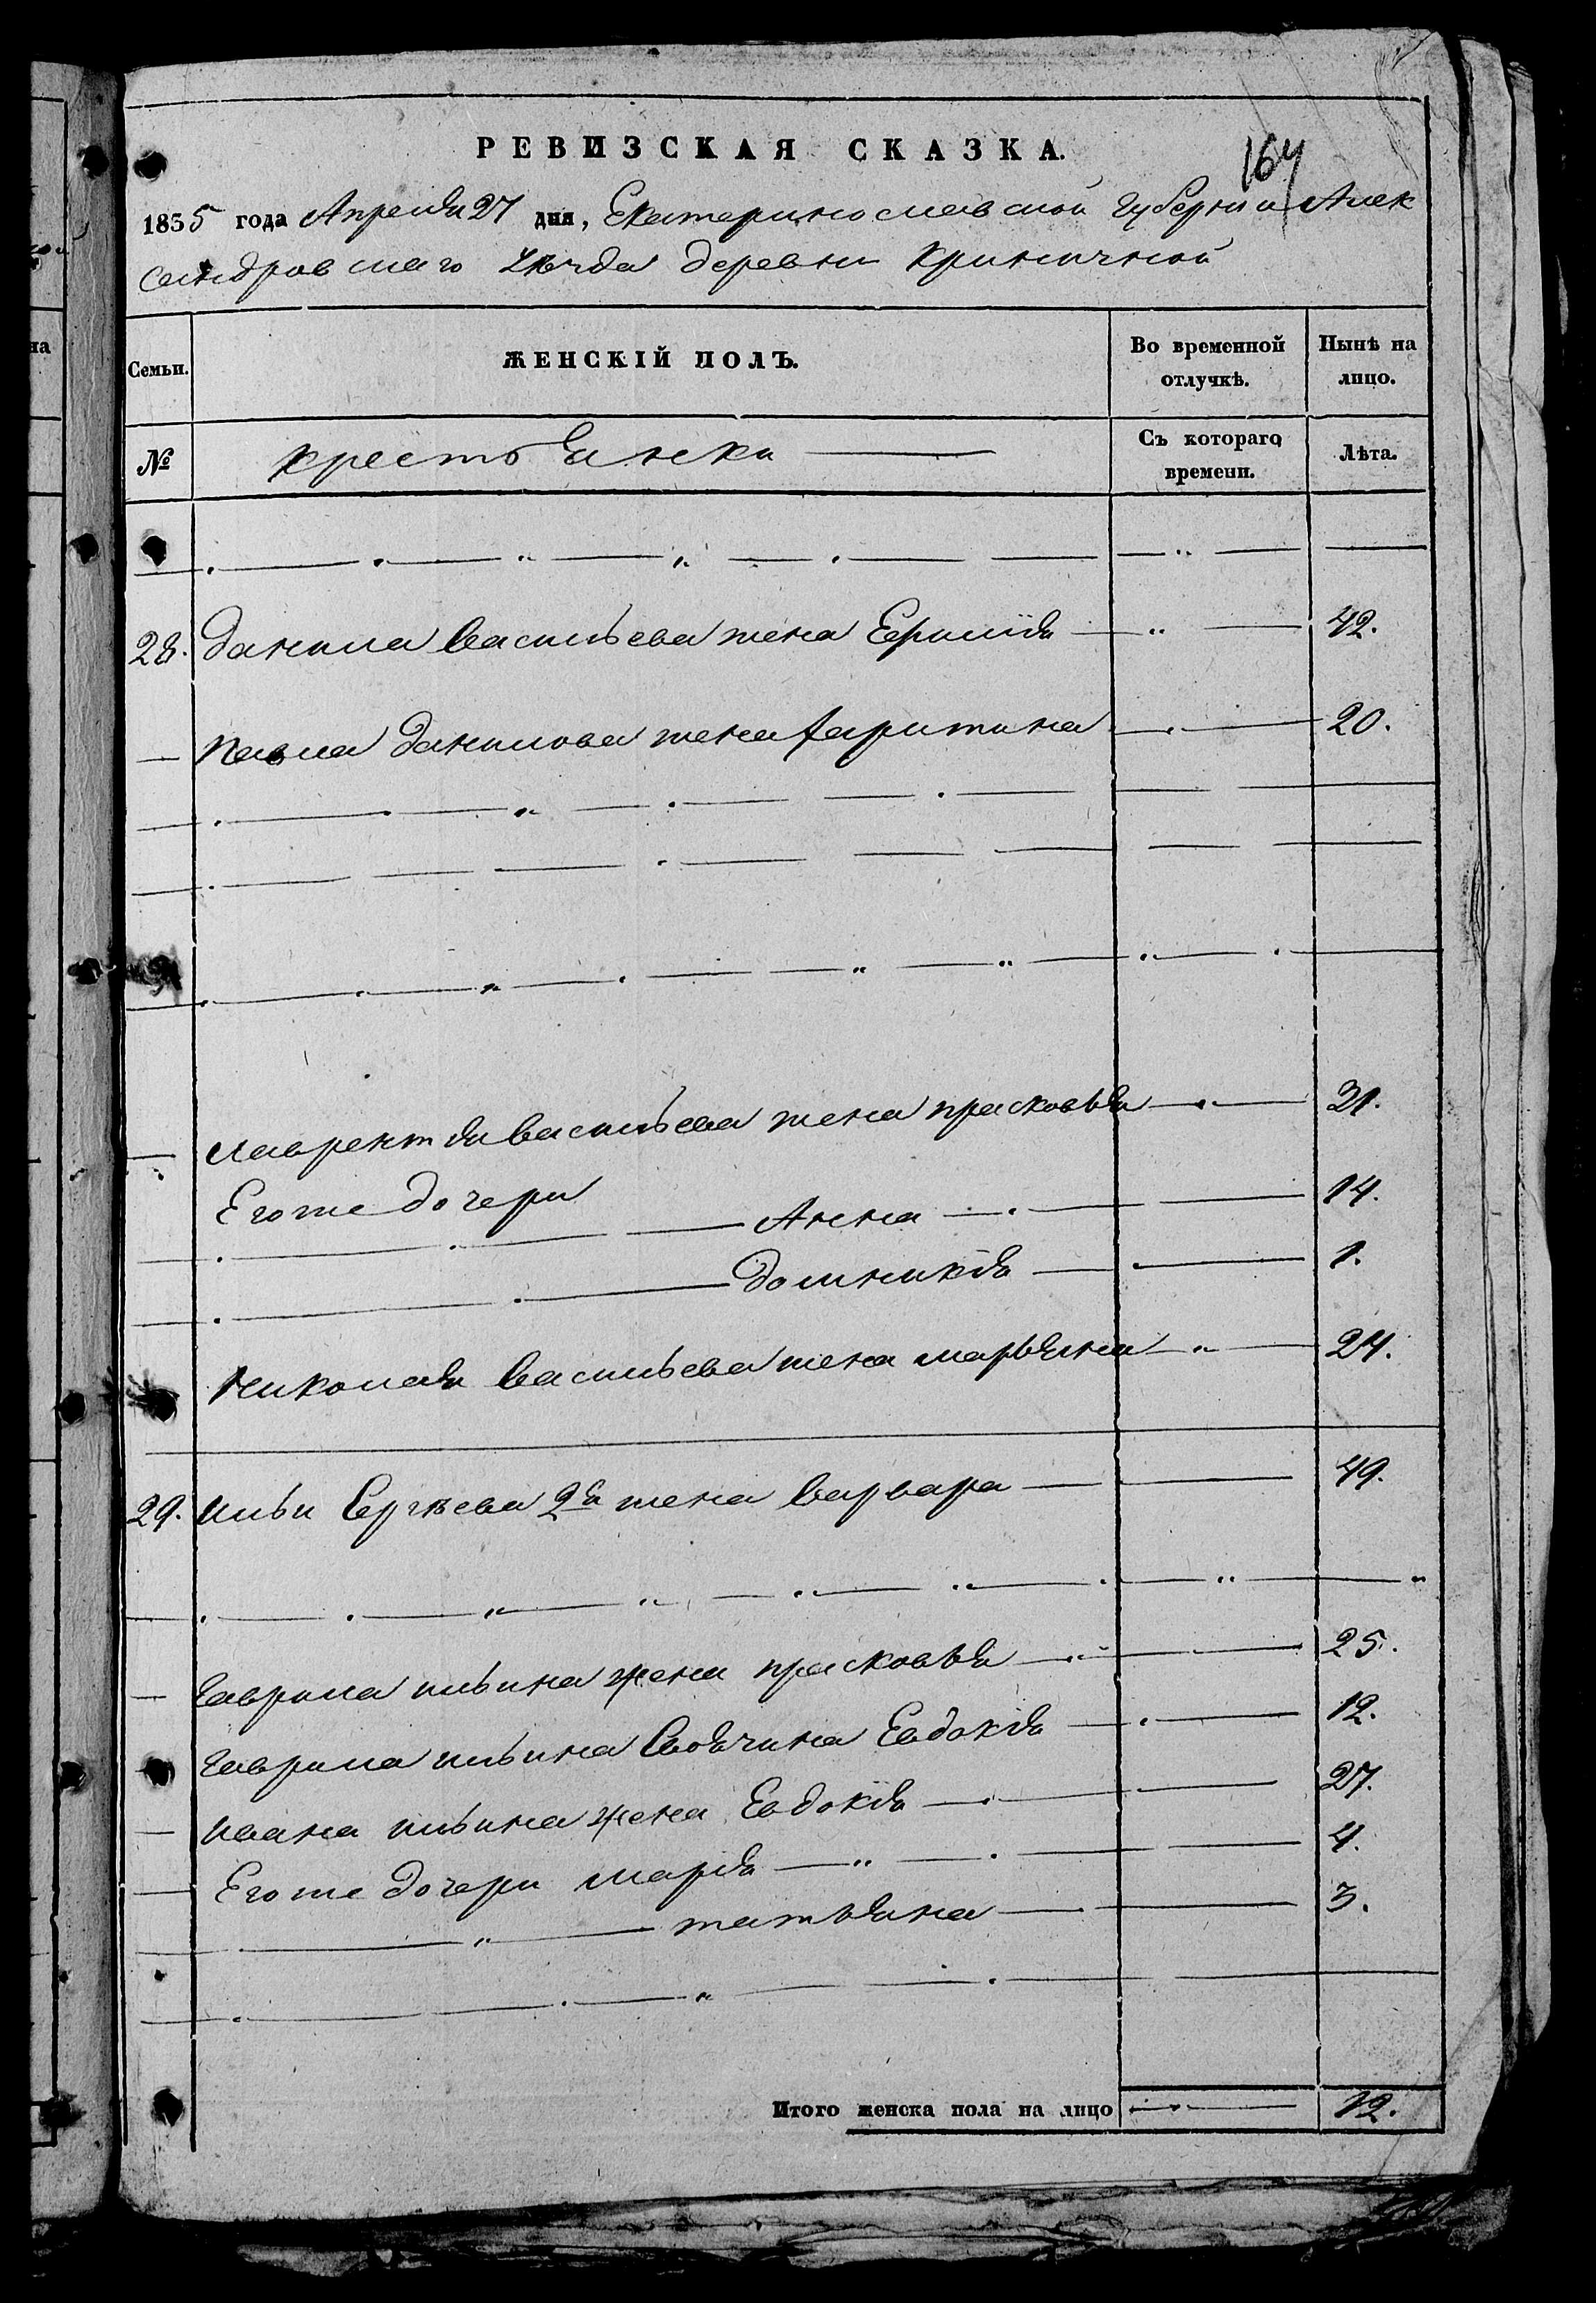 РЕВИЗСКАЯ СКАЗКА.
164
1835 года Апреля 27 дня, Екатеринославской губернии Алек
сандровскаго уѣзда деревни Криничной
Семьи.
ЖЕНСКІЙ ПОЛЪ.
Во временной отлучкѣ.
Нынѣ на лицо.
№
крестьянки
Съ котораго времени.
Лѣта.
28. Данила Васильева жена 42.
Павла Данилова жена Харитина 20.
Лаврентия Васильева жена прасковья 31.
Его же дочери
Анна 14.
домникія 1.
Николая Васильева жена марьяна 24.
29. ильи Сергѣева 2я жена варвара 49.
Гаврила ильина жена прасковья 25.
Гаврила ильина Евдокія 12.
ивана ильина жена Евдокія 27.
Его же дочери марія 4.
татьяна 3.
Итого женска пола на лицо 12.